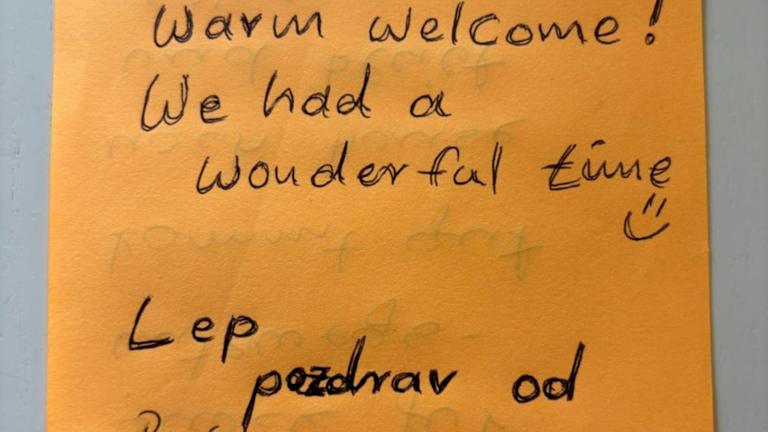 Warm welcome!
We had a
wonderful time
Lep
pozdrav od